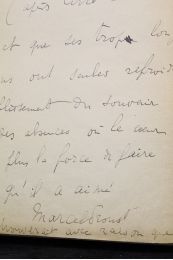 (après
et que ses trop lon
us ont seules refroidi
blissement du souvenir
ces absences où le cœur
plus la force de faire
qu'il a aimé
Marcel Proust
trouverait avec raison que